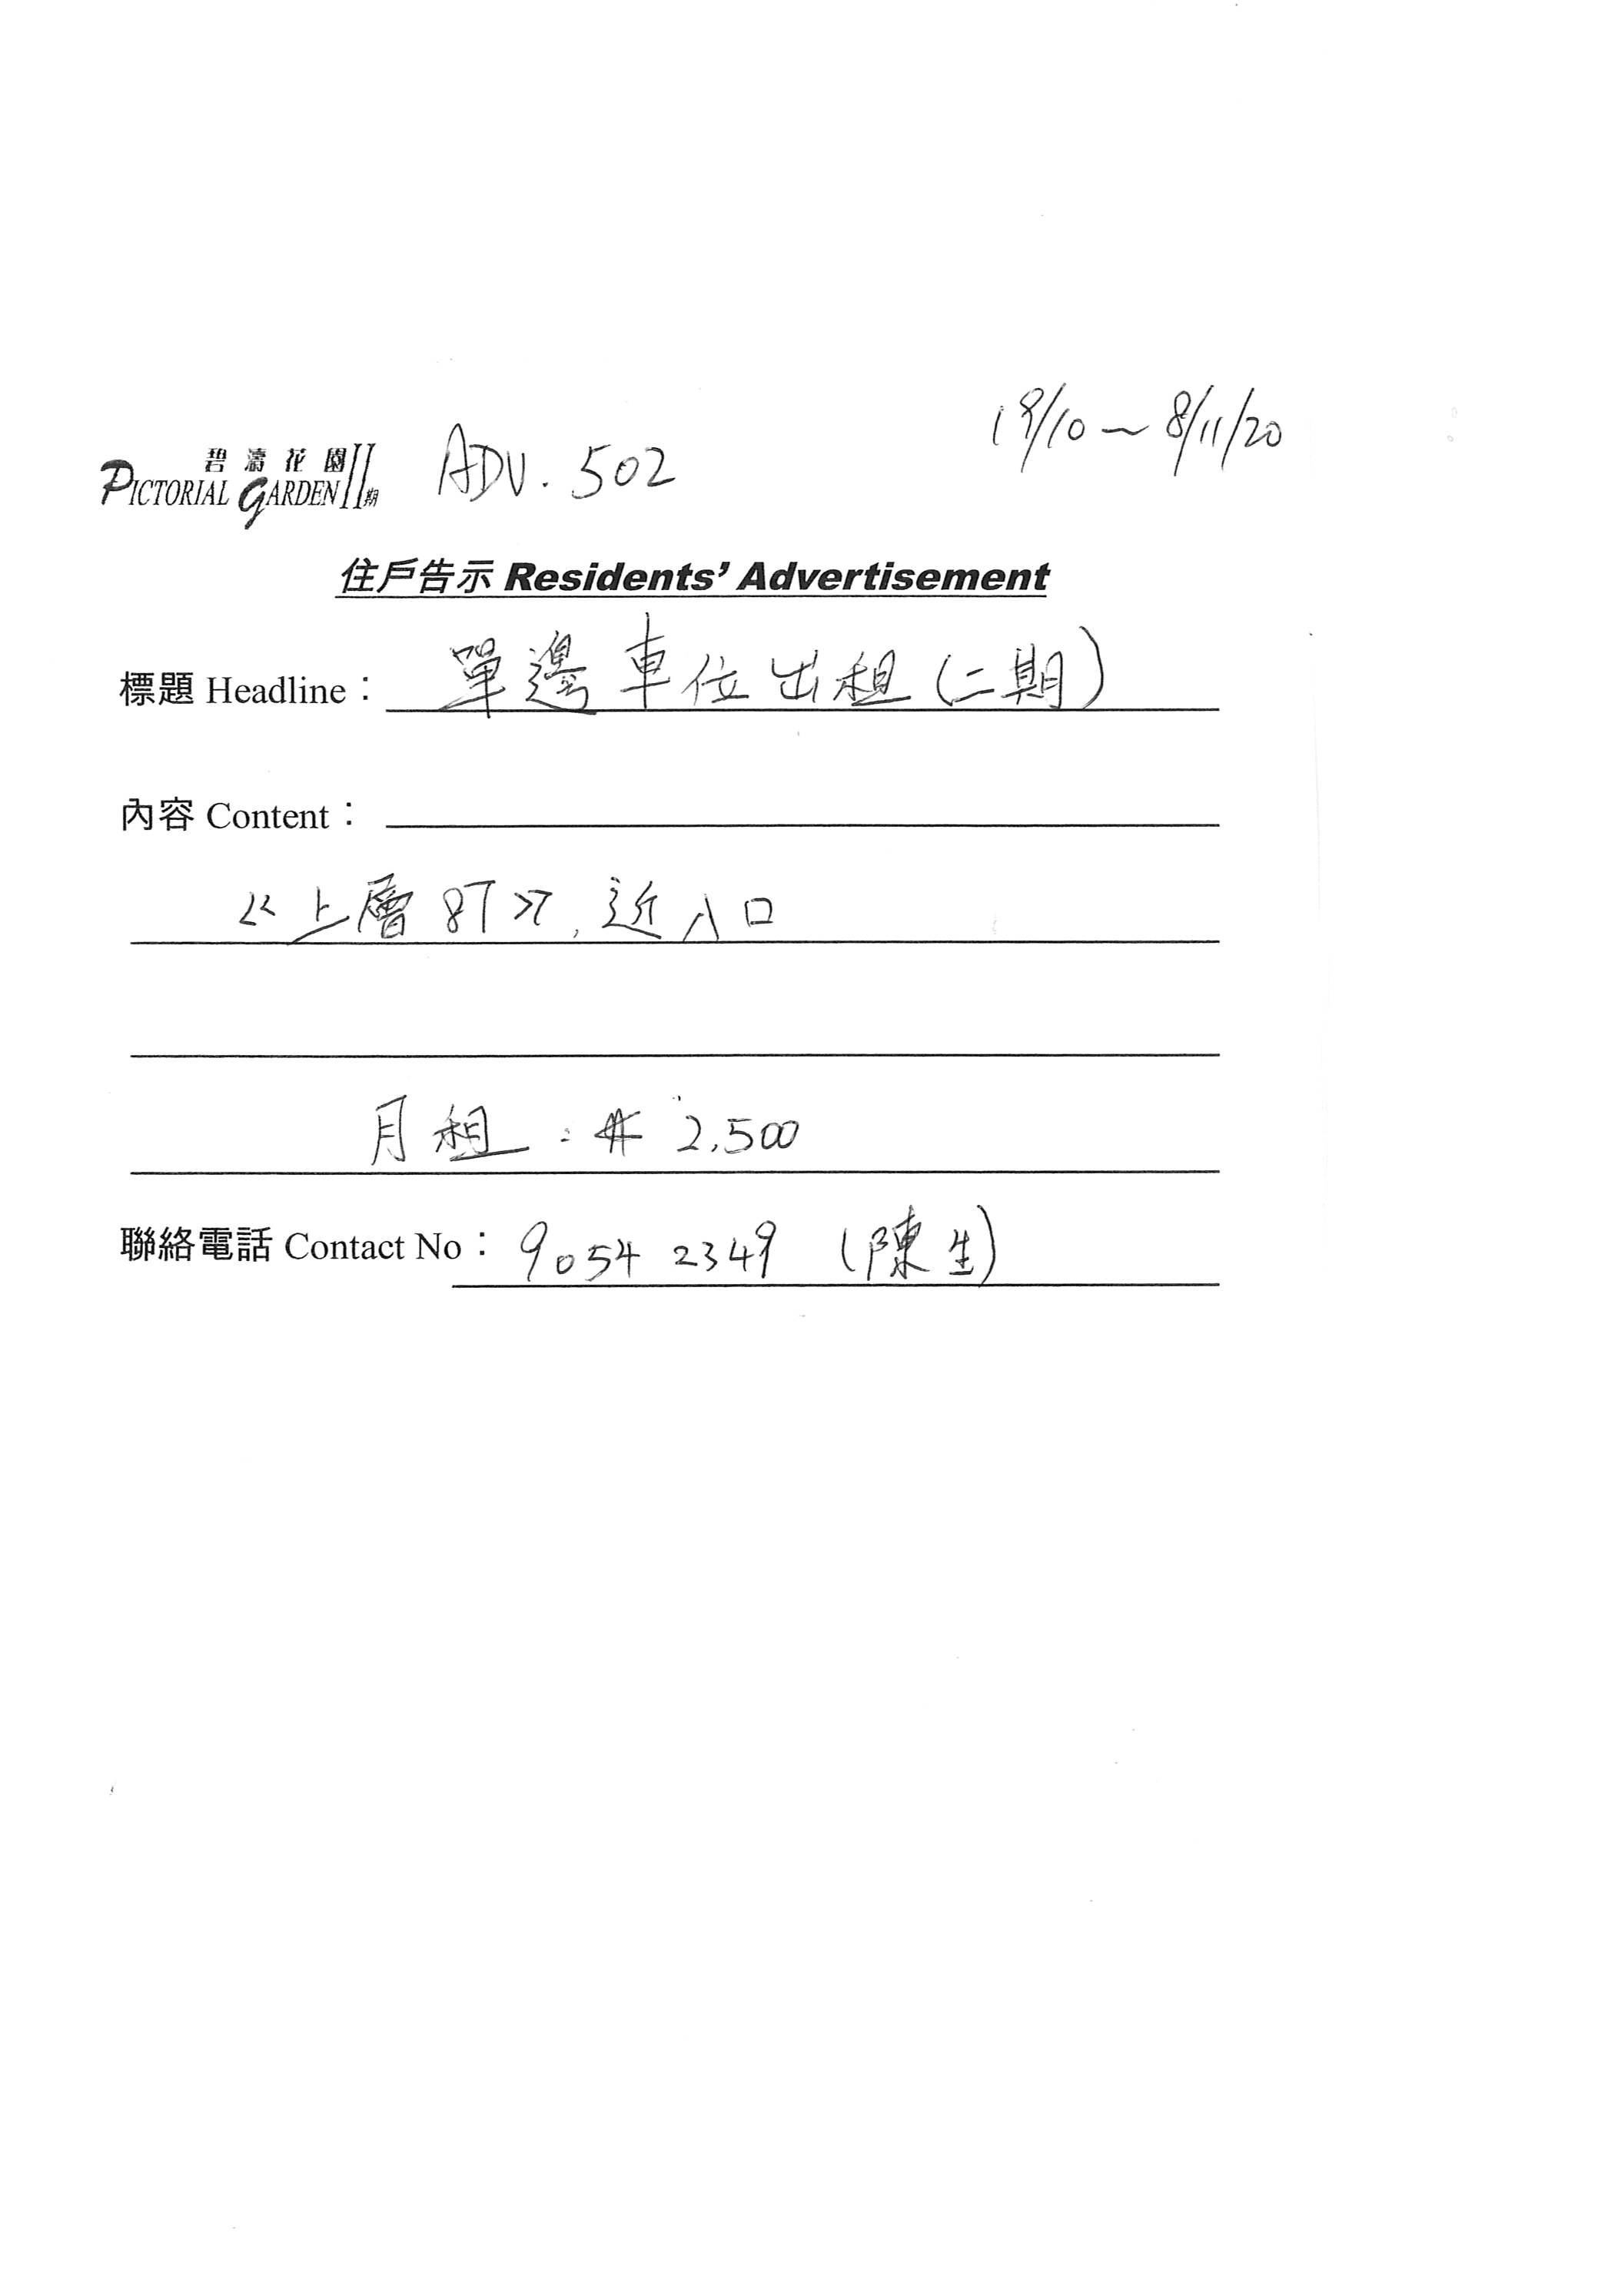 19/10~8/11/20
碧濤花園II期 ADV. 502
PICTORIAL GARDEN
住戶告示 Residents' Advertisement
標題 Headline：單邊車位出租(二期)
內容 Content：
<<上層87>>, 近入口
月租：$ 2,500
聯絡電話 Contact No：9054 2349 (陳生)